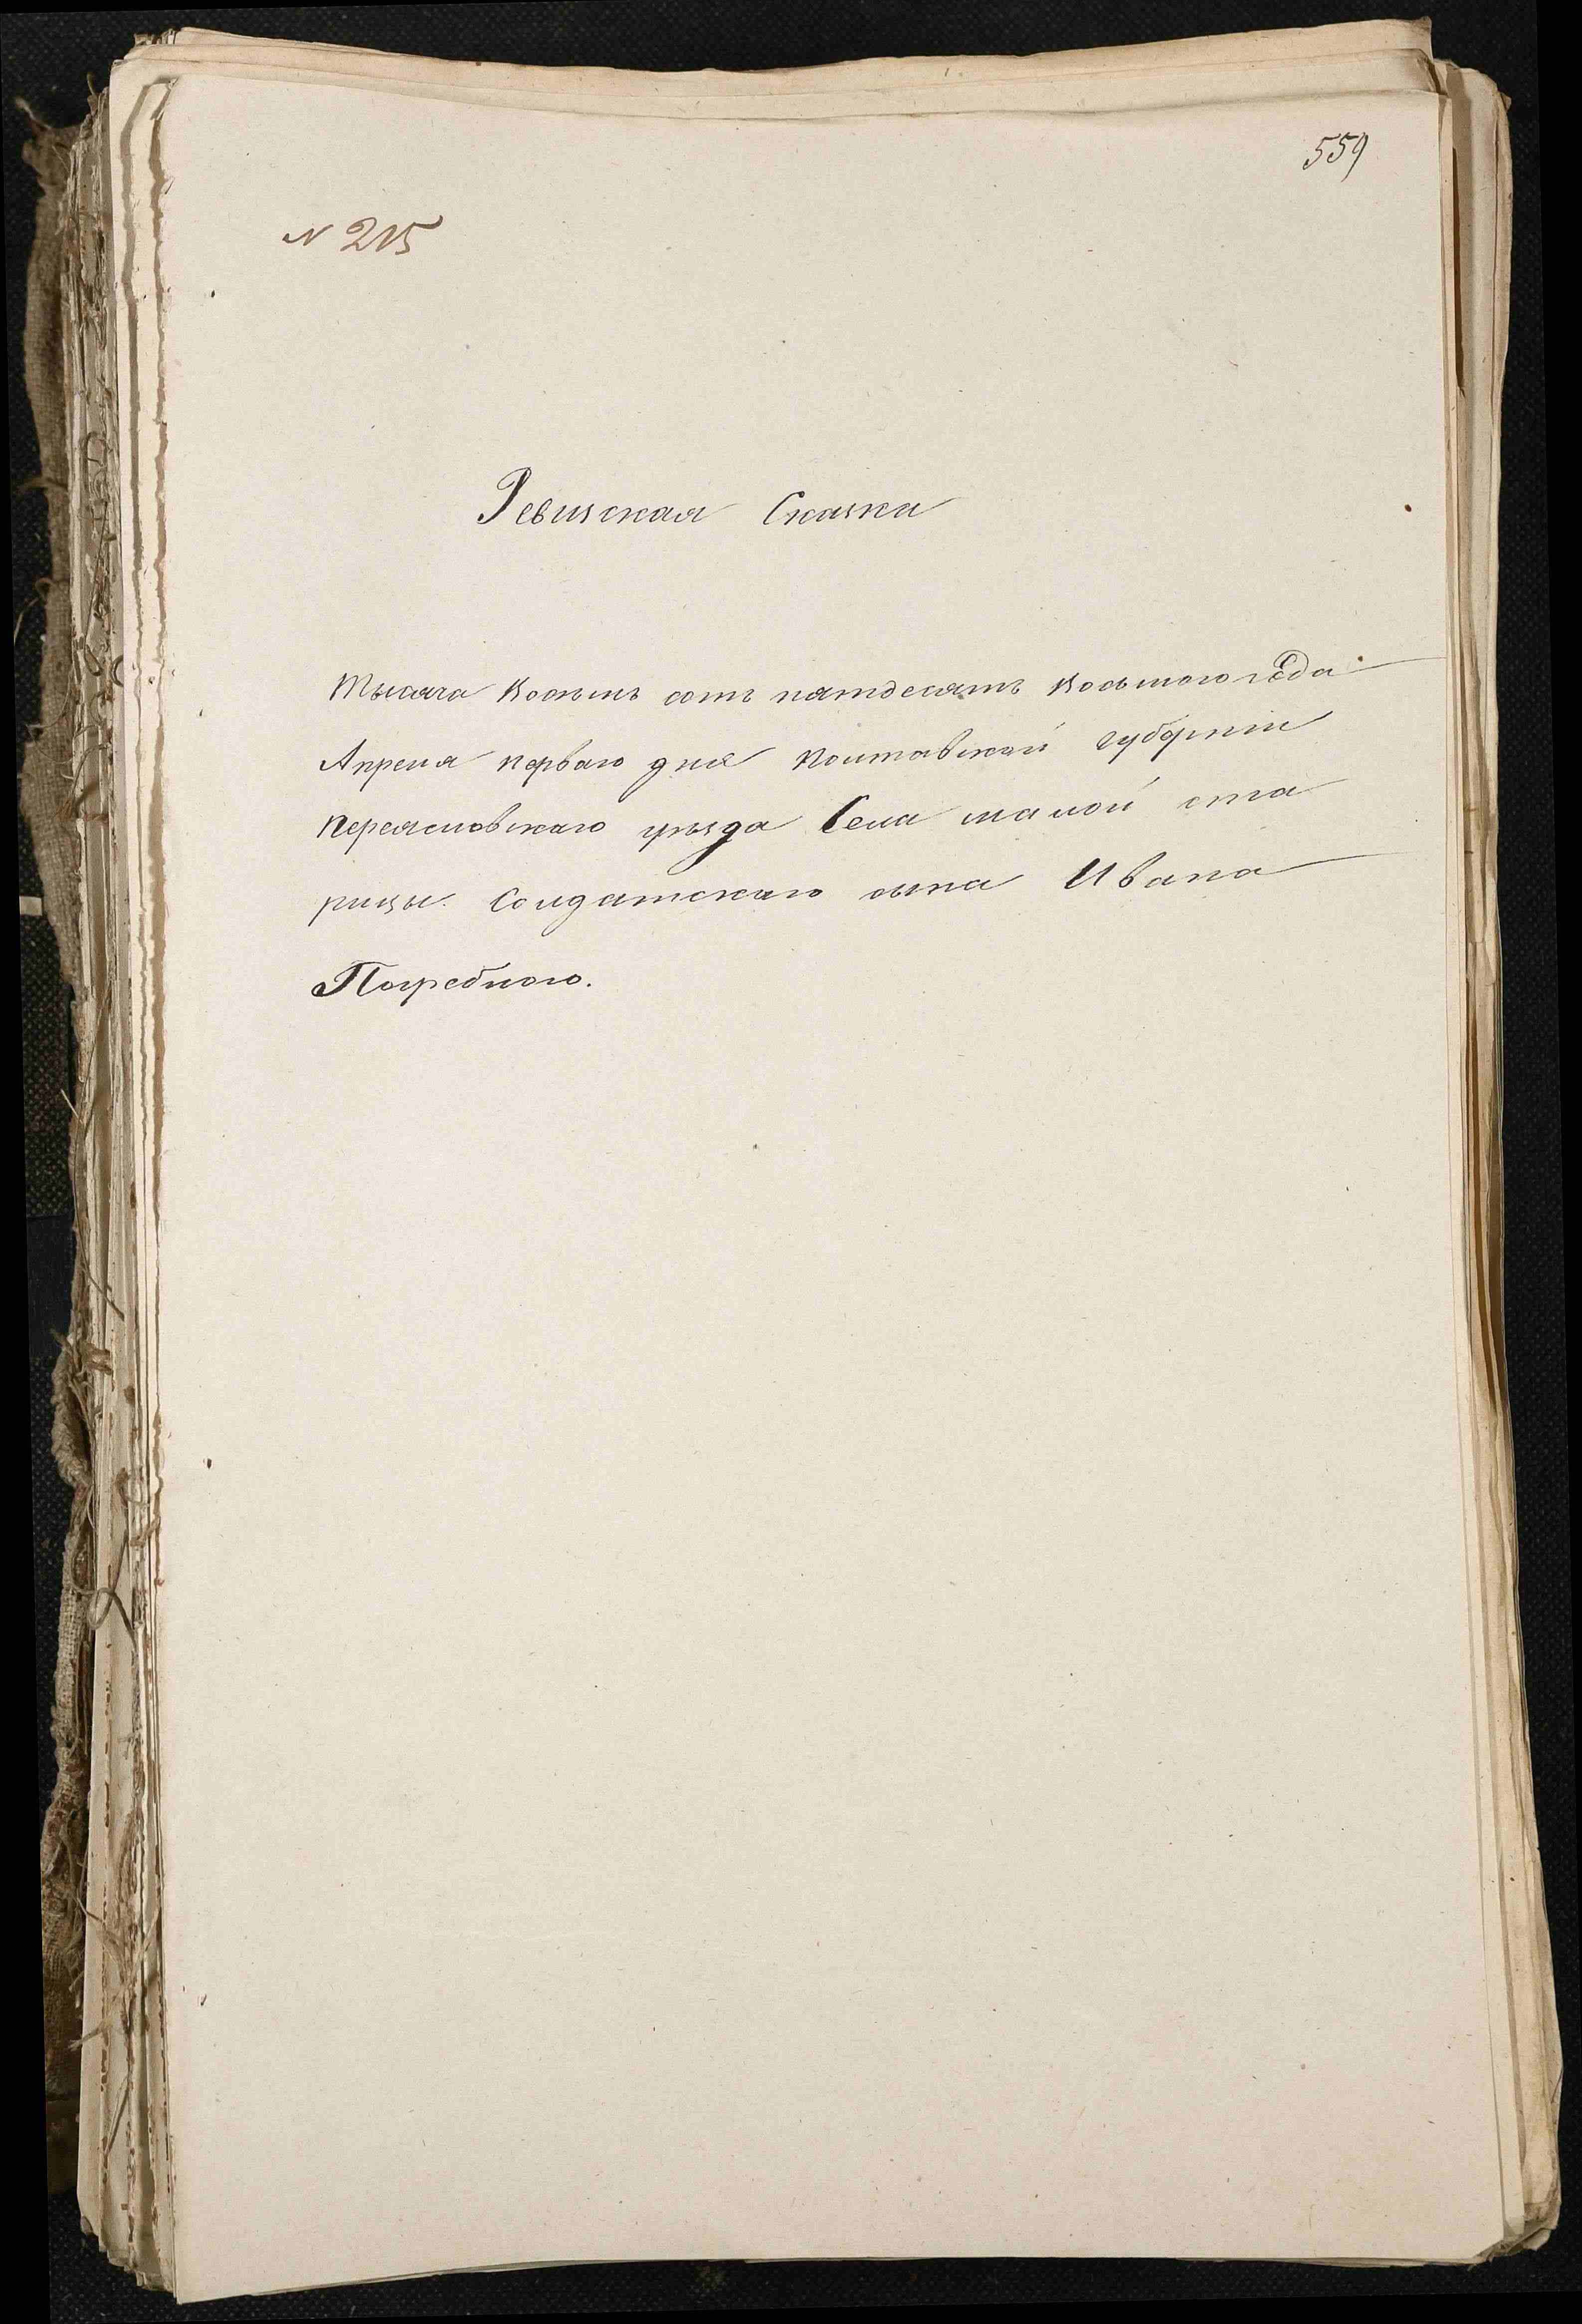 559
N 215
Ревизская Сказка
Тысяча восемь сотъ пятдесятъ восьмого года
Апреля перваго дня Полтавской губерніи
Переяславскаго уѣзда Села малой ста
рицы Солдатскаго сына Ивана
Погребного.